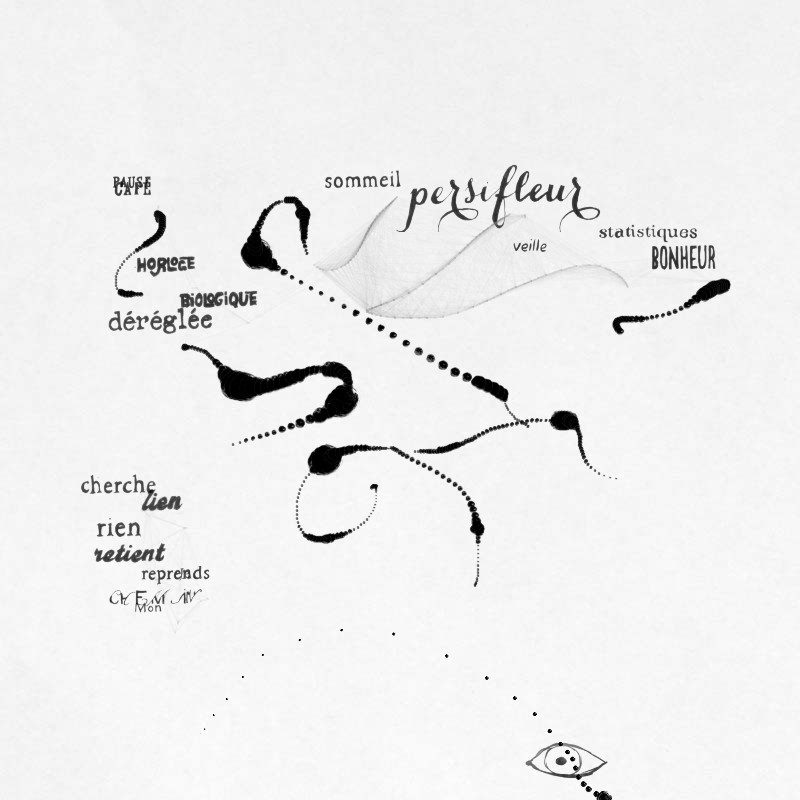 PAUSE
CAFE
sommeil
persifleur
veille
statistiques
BONHEUR
HORLOGE
BIOLOGIQUE
déréglée
cherche
lien
rien
retient
reprends
CHEMIN
Mon